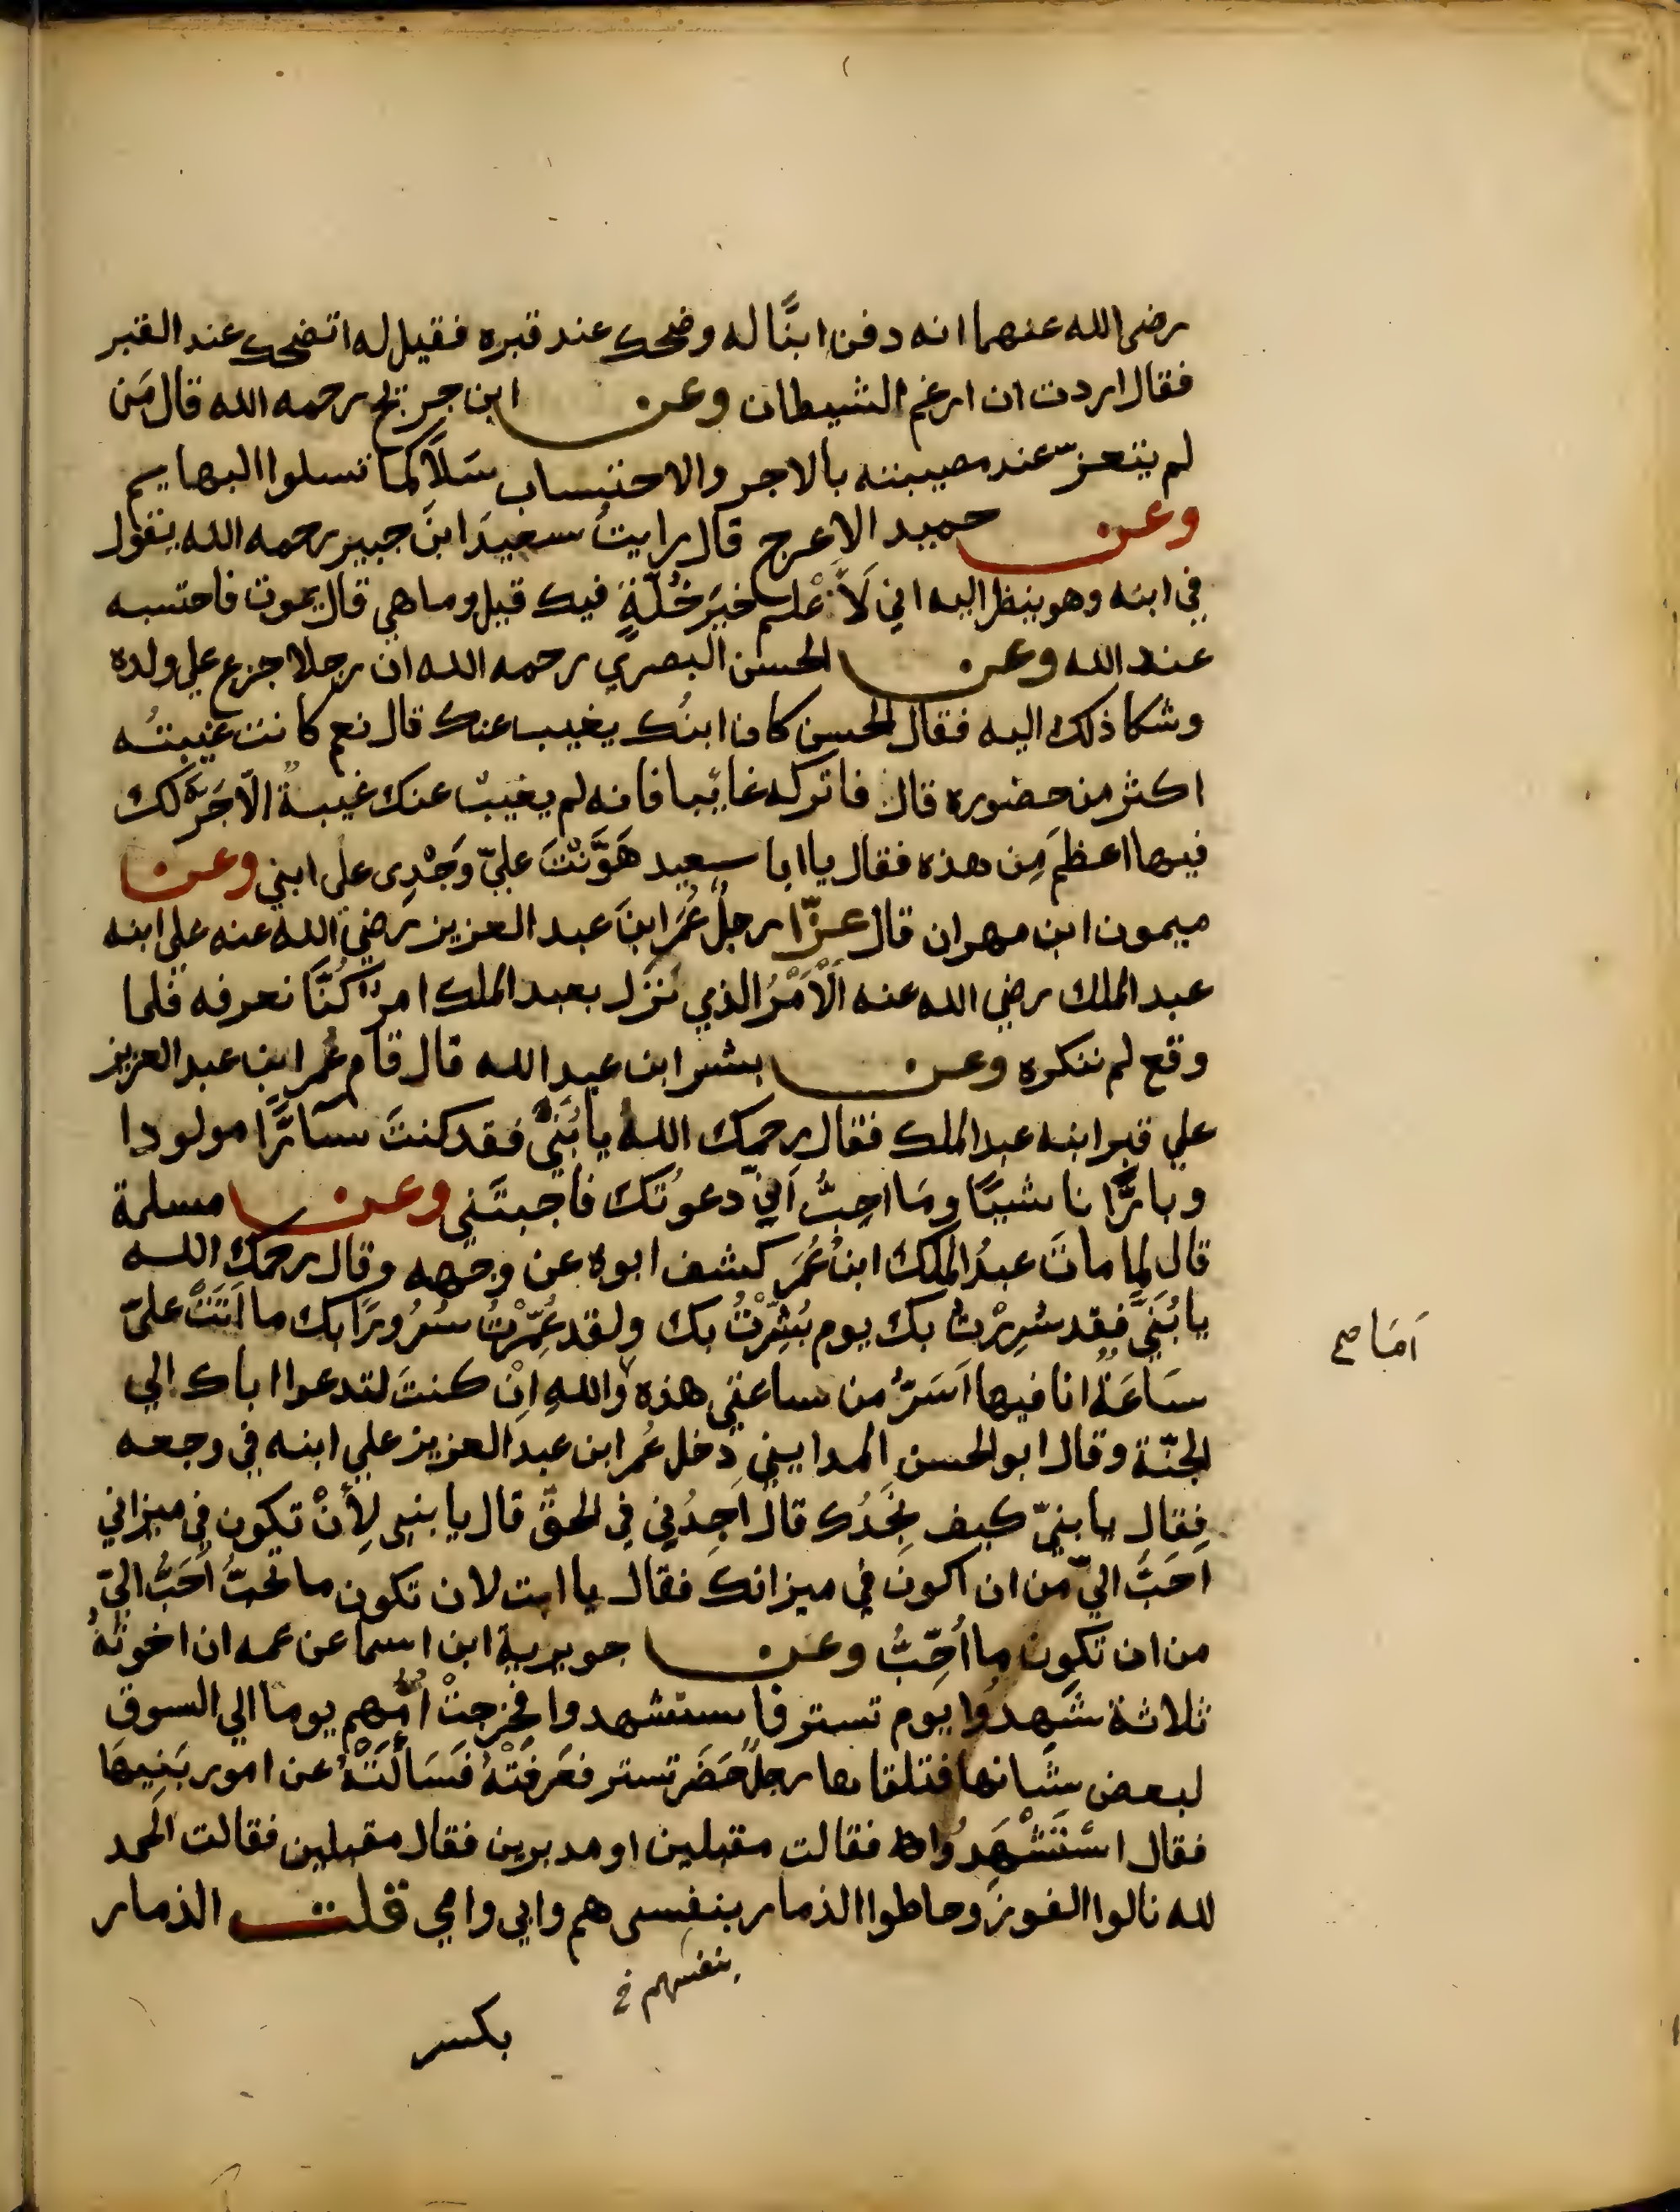 رضى الله عنهما انه دفن ابنًا له وضحك عند قبره فقيل له اتضحك عند القبر
فقال اردت ان ارغم الشيطان وعن ابن جريج رحمه الله قال مَن
لم يتعزّ عند مصيبته بالاجر والاحتساب سَلَا كما تسلوا البهايم
وعن حميد الاعرج قال رايتُ سعيدَ ابنَ جبير رحمه الله يقول
في ابنه وهو ينظر اليه اني لَاَعْلم خيرَ خُلّةٍ فيك قيل وما هي قال يموت فاحتسبه
عند الله وعن الحسن البصري رحمه الله ان رجلا جزع علي ولده
وشكا ذلك اليه فقال الحسن كان ابنُك يغيب عنك قال نعم كانت غيبتُه
اكثر من حضوره قال فاتركه غايبا فانه لم يغيب عنك غيبةً الّا جَرَّة لك
فيها اعظَم مِن هذه فقال يا ابا سعيد هَوَّنْتَ عليّ وَجْدِى على ابني وعن
ميمون ابن مهران قال عزّا رجلٌ عُمَرَ ابنَ عبد العزيز رضي الله عنه على ابنه
عبد الملك رضي الله عنه اَلْاَمْرُ الذي نَزَل بعبد الملك امرٌ كُنَّا نعرفه فلما
وقع لم ننكره وعن بشر ابن عبد الله قال قام عُمر ابن عبد العزيز
علي قبر ابنه عبد الملك فقال رحمك اللهُ يا بُنَيَّ فقد كنتَ سآرًّا مولودا
وبارًّا ناشيًا ومَا احِبُّ اَنيّ دعوتُك فاجبتَني وعن مسلمة
قال لما ماتَ عبدُ الملك ابنُ عُمَر كشف ابوه عن وجهه وقال رحمك الله
يا بُنَيَّ فقد سُرِرْتُ بك يوم بُشِّرْتُ بك ولقد عُمِّرْتُ سُرُورًا بك ما اَتَتْ عليّ
سَاعَةٌ انا فيها اَسَرُّ من ساعتي هذه والله اِنْ كنتَ لتدعوا اباك الي
اَمَا صح
الجنّة وقال ابو الحسن المدايني دخل عُمر ابن عبد العزيز علي ابنه في وجعه
فقال يا بنيّ كيف تجدُك قال اَجِدُني في الحقّ قال يا بني لِأَنْ تكون في ميزاني
احَبُّ اليّ من ان اكونَ في ميزانك فقال يا ابت لان تكون ما تحبُّ اَحَبُّ اليّ
من ان تكون ما اُحِبُّ وعن جويرية ابن اسما عن عمه ان اخوتةً
ثلاثة شَهِدُوا يوم تستر فاستشهدوا فخرجتْ امّهم يوما الي السوق
لبعض شانها فتلقاها رجلٌ حَضَر تستر فعَرفَتْهُ فَسَاَلَتْهُ عن امور بَنِيهَا
فقال اسْتَشْهَدُوا فقالت مقبلين او مدبرين فقال مقبلين فقالت الحمد
لله نالوا الفوز وحاطوا الذمار بنفسى هم وابي وامي قلت الذمار
بنفسهم خ
بكسر